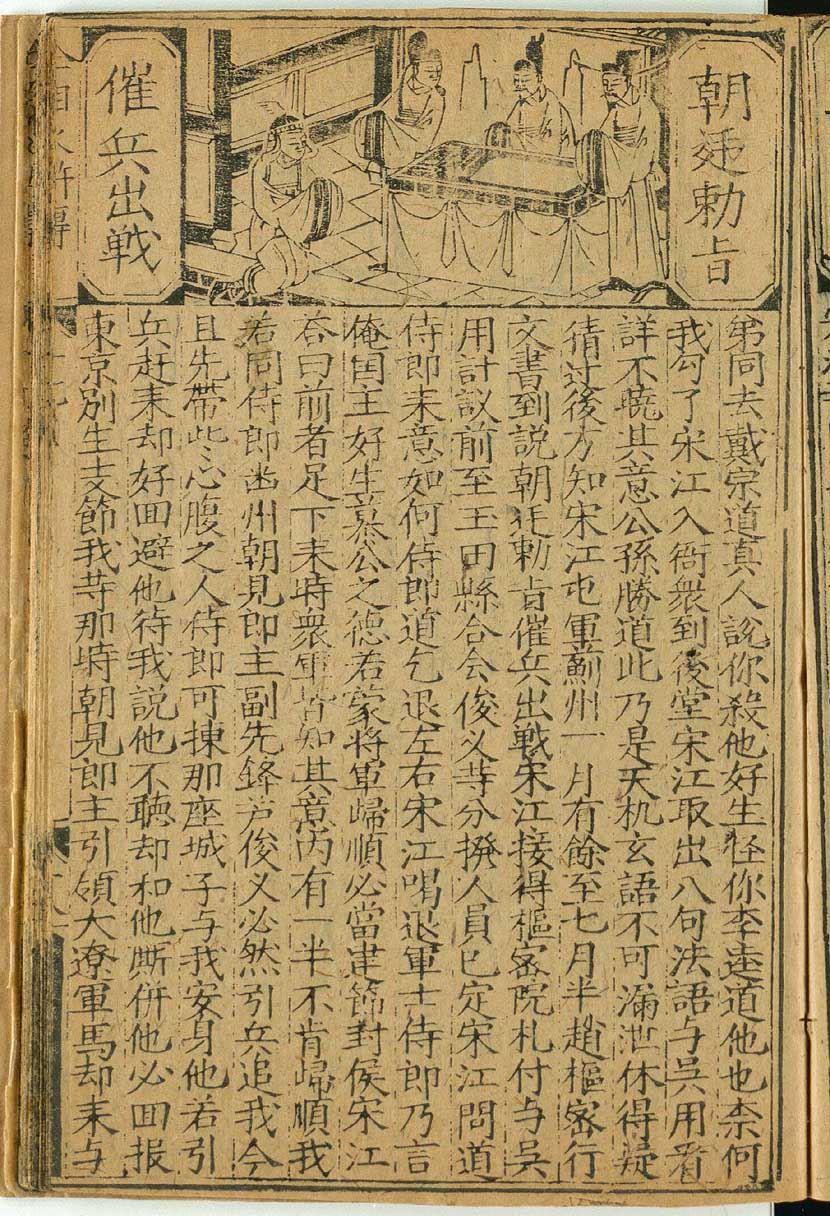 朝廷勅旨
催兵出戦
第同去戴宗道真人說你殺他好生怪你李逵道他也柰何
我勾了宋江入衙衆到後堂宋江取出八句法語与吳用看
詳不曉其意公孫勝道此乃是天机玄語不可漏泄休得疑
猜过後方知宋江屯軍薊州一月有餘至七月半趙樞密行
文書到說朝廷勅旨催兵出戦宋江接得樞密院札付与吳
用計议前至玉田縣合会俊义等分撥人員已定宋江問道
侍郎来意如何侍郎道乞退左右宋江喝退軍士侍郎乃言
俺国主好生慕公之德若蒙將軍歸順必當建節封侯宋江
荅曰前者足下来時衆軍皆知其意內有一半不肯歸順我
若同侍郎幽州朝見郎主副先鋒芦俊义必然引兵追我今
且先帶些心腹之人侍郎可揀那座城子与我安身他若引
兵赶来却好回避他待我說他不聴却和他厮併他必回报
東京別生支節我等那時朝見郎主引領大遼軍馬却来与